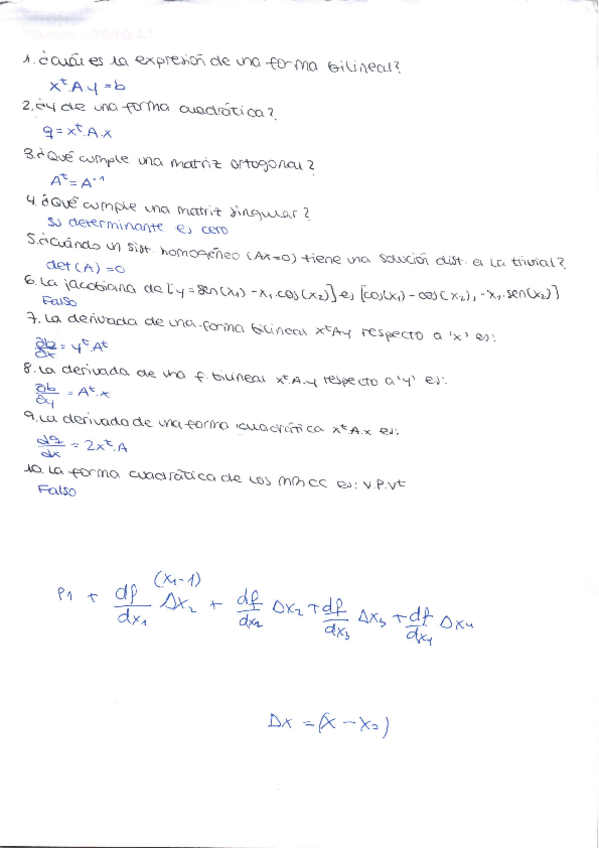 1. ¿Cuál es la expresión de una forma bilineal?
x^t A y = b
2. ¿Y de una forma cuadrática?
q = x^t . A . x
3. ¿Qué cumple una matriz ortogonal?
A^t = A^-1
4. ¿Qué cumple una matriz singular?
Su determinante es cero
5. ¿Cuándo un sist. homogéneo (Ax=0) tiene una solución dist. a la trivial?
det (A) = 0
6. La jacobiana de [y = sen(x1) - x1 . cos(x2)] es [cos(x1) - cos(x2), -x1 . sen(x2)]
Falso
7. La derivada de una forma bilineal x^t A y respecto a 'x' es:
∂b/∂x = y^t . A^t
8. La derivada de una f. bilineal x^t . A . y respecto a 'y' es:
∂b/∂y = A^t . x
9. La derivada de una forma cuadrática x^t . A . x es:
∂q/∂x = 2x^t . A
10. La forma cuadrática de los MMCC es: V.P.V^t
Falso
(x1 - 1)
P1 + df/dx1 Δx2 + df/dx2 Δx2 + df/dx3 Δx3 + df/dx4 Δx4
Δx = (x - x2)